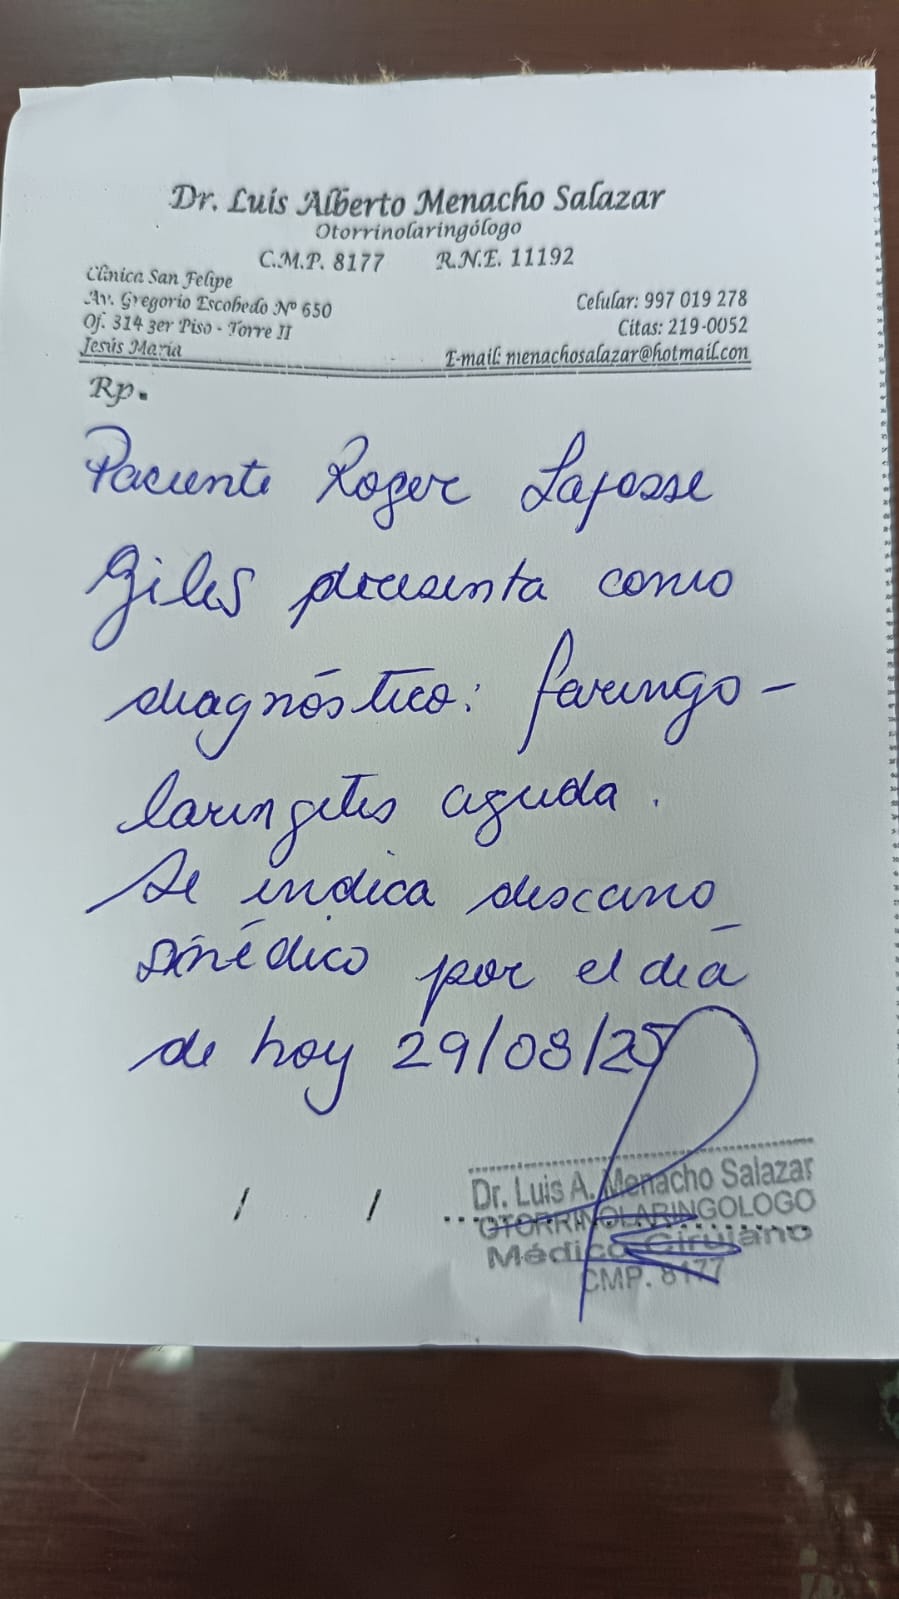 Dr. Luis Alberto Menacho Salazar
Otorrinolaringólogo
C.M.P. 8177 R.N.E. 11192
Clínica San Felipe
Av. Gregorio Escobedo Nº 650
Of. 314 3er Piso - Torre II
Jesús María
Celular: 997 019 278
Citas: 219-0052
E-mail: menachosalazar@hotmail.con
Rp.
Paciente Roger Lafosse
Giles presenta como
diagnóstico: faringo-
laringitis aguda.
Se indica descanso
médico por el día
de hoy 29/08/25
/ /
Dr. Luis A. Menacho Salazar
OTORRINOLARINGOLOGO
Médico Cirujano
CMP. 8177